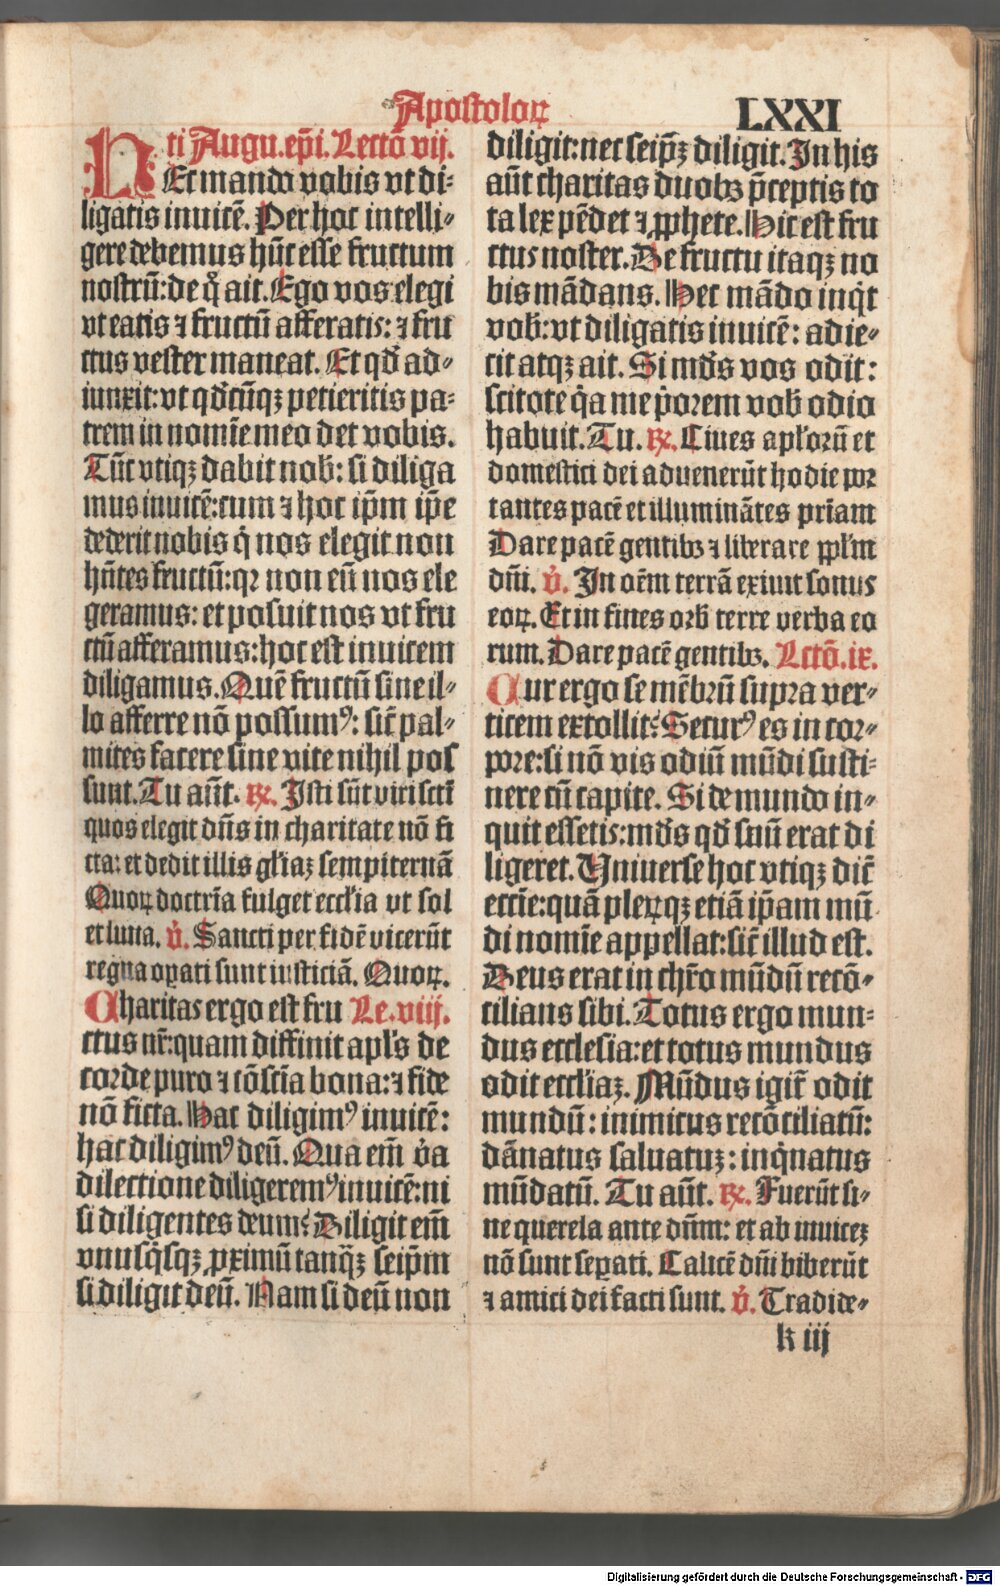 Apostoloꝝ
LXXI
ti Augu. ep̄i. Lectō vij.
HEc mando vobis vt di⸗
ligatis inuicē. Per hoc intelli⸗
gere debemus hūc esse fructum
nostrū: de q̊ ait. Ego vos elegi
vt eatis ⁊ fructū afferatis: ⁊ fru
ctus vester maneat. Et qd̄ ad⸗
iunxit: vt qd̄cūqꝫ petieritis pa⸗
trem in nomīe meo det vobis.
Tūc vtiqꝫ dabit nob̄: si diliga
mus inuicē: cum ⁊ hoc ip̄m ip̄e
dederit nobis q̇ nos elegit non
hn̄tes fructū: qꝛ non eū nos ele
geramus: et posuit nos vt fru
ctū afferamus: hoc est inuicem
diligamus. Quē fructū sine il⸗
lo afferre nō possumꝰ: sic̄ pal⸗
mites facere sine vite nihil pos
sunt. Tu aūt. ℟. Isti sūt viri sctī
quos elegit dn̄s in charitate nō fi
cta: et dedit illis gl'iaꝫ sempiternā
Quoꝝ doctrīa fulget eccl'ia vt sol
et luna. ℣. Sancti per fidē vicerūt
regna oꝑati sunt iusticiā. Quoꝝ.
Charitas ergo est fru Le. viij.
ctus nr̄: quam diffinit apl's de
corde puro ⁊ cōsc̄ia bona: ⁊ fide
nō ficta. Hac diligimꝰ inuicē:
hac diligimꝰ deū. Qua em̄ v̇a
dilectione diligeremꝰ inuicē: ni
si diligentes deum? Diligit em̄
vnusq̇sqꝫ ꝓximū tanq̄ꝫ seip̄m
si diligit deū. Nam si deū non
diligit: nec seip̄ꝫ diligit. In his
aūt charitas duobꝫ p̄ceptis to
ta lex pēdet ⁊ ꝓphete. Hic est fru
ctus noster. De fructu itaqꝫ no
bis mādans. Hec mādo inq̇t
vob̄: vt diligatis inuicē: adie⸗
cit atqꝫ ait. Si mūds vos odit:
scitote q̇a me ṗorem vob̄ odio
habuit. Tu. ℟. Ciues apl'orū et
domestici dei aduenerūt hodie por
tantes pacē et illuminātes pr̄iam
Dare pacē gentibꝫ ⁊ liberare ppl'm
dn̄i. ℣. In oēm terrā exiuit sonus
eoꝝ. Et in fines orb̄ terre verba eo
rum. Dare pacē gentibꝫ. Lctō. ix.
Cur ergo se mēbrū supra ver⸗
ticem extollit? Securꝰ es in cor⸗
pore: si nō vis odiū mūdi susti⸗
nere cū capite. Si de mundo in⸗
quit essetis: mūds qd̄ suū erat di
ligeret. Uniuerse hoc vtiqꝫ dic̄
eccīe: quā pleꝝqꝫ etiā ip̄am mū
di nomīe appellat: sic̄ illud est.
Deus erat in chr̄o mūdū recō⸗
cilians sibi. Totus ergo mun⸗
dus ecclesia: et totus mundus
odit eccl'iaꝫ. Mūdus igit̄ odit
mundū: inimicus recōciliatū:
dānatus saluatuꝫ: inq̇natus
mūdatū. Tu aūt. ℟. Fuerūt si⸗
ne querela ante dn̄m: et ab inuiceꝫ
nō sunt seꝑati. Calicē dn̄i biberūt
⁊ amici dei facti sunt. ℣. Tradide⸗
k iij
Digitalisierung gefördert durch die Deutsche Forschungsgemeinschaft - DFG